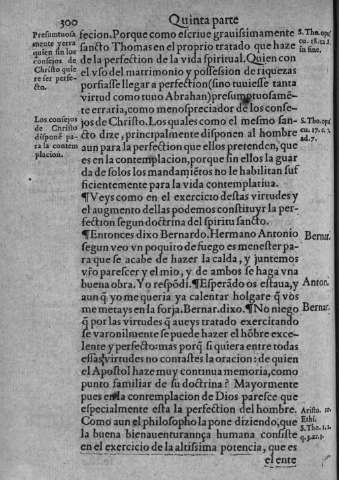 300
Quinta parte
Presuntuosa
mente yerra
quien sin los
consejos de
Christo quie
re ser perfe-
cto.
Los consejos
de Christo
disponē pa-
ra la contem
placion.
fecion. Porque como escriue grauissimamente
sancto Thomas en el proprio tratado que haze
de la perfection de la vida spiritual. Quien con
el vso del matrimonio y possesion de riquezas
porfiasse llegar a perfection (sino tuuiesse tanta
virtud como tuuo Abrahan) presumptuosamē-
te erraria, como menospreciador de los conse-
jos de Christo. Los quales como el mesmo san-
cto dize, principalmente disponen al hombre
aun para la perfection que ellos pretenden, que
es en la contemplacion, porque sin ellos la guar
da de solos los mandamiētos no le habilitan suf
ficientemente para la vida contemplatiua.
¶Veys como en el exercicio destas virtudes y
el augmento dellas podemos constituyr la per-
fection segun doctrina del spiritu sancto.
¶Entonces dixo Bernardo. Hermano Antonio
segun veo vn poquito de fuego es menester pa-
ra que se acabe de hazer la calda, y juntemos
vr̄o parescer y el mio, y de ambos se haga vna
buena obra. Yo respōdi. ¶Esperādo os estaua, y
aun q̄ yo me queria ya calentar holgare q̄ vos
me metays en la forja. Bernar. dixo. ¶No niego
q̄ por las virtudes q̄ aueys tratado exercitando
se varonilmente se puede hazer el hōbre exce-
lente y perfecto: mas porq̄ si quiera entre todas
essas virtudes no contastes la oracion: de quien
el Apostol haze muy continua memoria, como
punto familiar de su doctrina? Mayormente
pues en la contemplacion de Dios paresce que
especialmente esta la perfection del hombre.
Como aun el philosopho la pone diziendo, que
la buena bienauenturannça humana consiste
en el exercicio de la altissima potencia, que es
el ente
S. Tho. opus
in fine.
S. Tho. opus
ad. 7.
Bernar.
Anton.
Bernar.
Aristo. 10.
Ethi.
S. Tho. 1. 2.